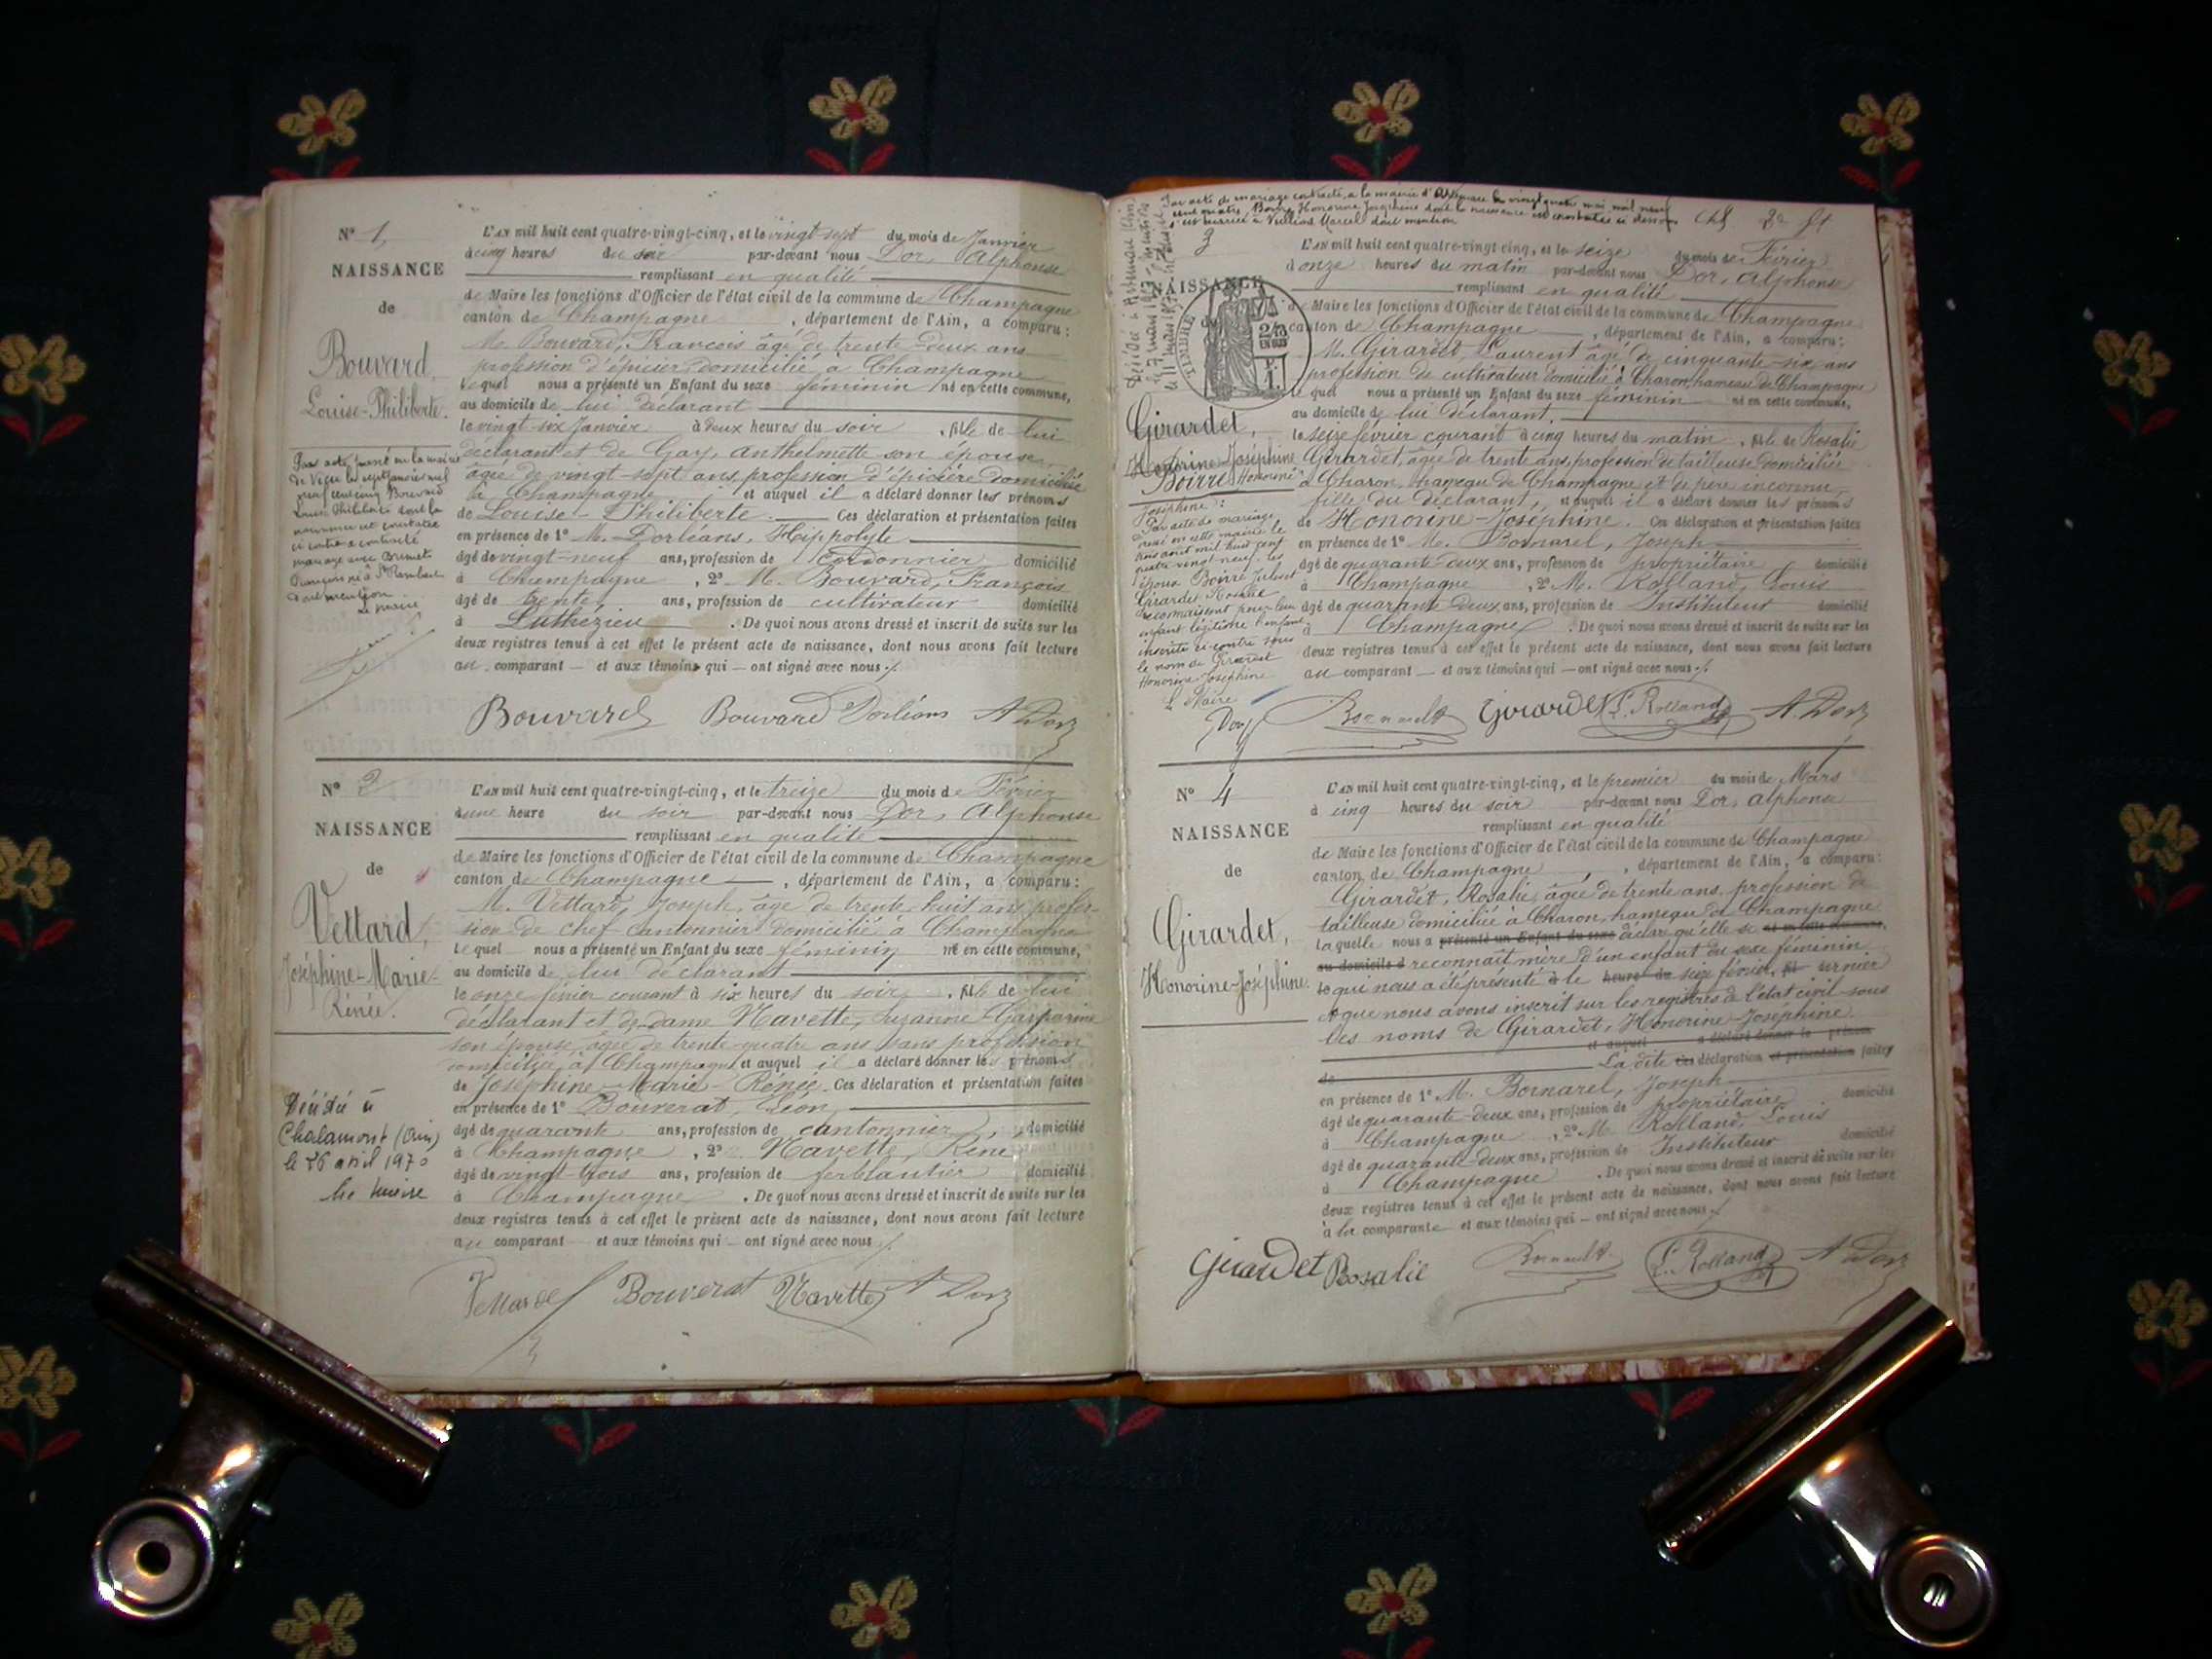 N° 1
NAISSANCE
de
Bouvard,
Louise-Philiberte.
Par acte passé en la mairie
de Vieu le sept janvier mil
neuf cent cinq Bouvard
Louise Philiberte dont la
naissance est constatée
ci contre a contracté
mariage avec Brunet
François né à St Rambert
dont mention
Le maire
L'AN mil huit cent quatre-vingt-cinq, et le vingt sept du mois de Janvier
à cinq heures du soir par-devant nous Dor, Alphonse
remplissant en qualité
de Maire les fonctions d'Officier de l'état civil de la commune de Champagne
canton de Champagne, département de l'Ain, a comparu:
M. Bouvard, François âgé de trente-deux ans
profession d'épicier domicilié à Champagne
lequel nous a présenté un Enfant du sexe féminin né en cette commune,
au domicile de lui déclarant
le vingt-six janvier à deux heures du soir, fille de lui
déclarant et de Gay, Anthelmette son épouse,
âgée de vingt-sept ans, profession d'épicière domiciliée
à Champagne et auquel il a déclaré donner les prénoms
de Louise-Philiberte. Ces déclaration et présentation faites
en présence de 1° M. Dorléans, Hippolyte
âgé de vingt-neuf ans, profession de cordonnier domicilié
à Champagne, 2° M. Bouvard, François
âgé de trente ans, profession de cultivateur domicilié
à Luthézieu. De quoi nous avons dressé et inscrit de suite sur les
deux registres tenus à cet effet le présent acte de naissance, dont nous avons fait lecture
au comparant — et aux témoins qui — ont signé avec nous ./.
Bouvard Bouvard Dorléans A Dor
N° 2
NAISSANCE
de
Vettard,
Joséphine-Marie-
Rénée.
Décédée à
Chalamont (Ain)
le 26 avril 1970
Le Maire
L'AN mil huit cent quatre-vingt-cinq, et le treize du mois de Février
à une heure du soir par-devant nous Dor, Alphonse
remplissant en qualité
de Maire les fonctions d'Officier de l'état civil de la commune de Champagne
canton de Champagne, département de l'Ain, a comparu:
M. Vettard, Joseph, âgé de trente-huit ans profes-
sion de chef-cantonnier domicilié à Champagne
lequel nous a présenté un Enfant du sexe féminin né en cette commune,
au domicile de lui déclarant
le onze février courant à six heures du soir, fille de lui
déclarant et de dame Navette, Suzanne Gasparine
son épouse, âgée de trente-quatre ans sans profession
domiciliée à Champagne et auquel il a déclaré donner les prénoms
de Joséphine-Marie-Rénée. Ces déclaration et présentation faites
en présence de 1° Bouverat, Léon,
âgé de quarante ans, profession de cantonnier, domicilié
à Champagne, 2° Navette, René
âgé de vingt-trois ans, profession de ferblantier domicilié
à Champagne. De quoi nous avons dressé et inscrit de suite sur les
deux registres tenus à cet effet le présent acte de naissance, dont nous avons fait lecture
au comparant — et aux témoins qui — ont signé avec nous ./.
Vettard Bouverat Navette A Dor
Par acte de mariage contracté à la mairie d' le vingt quatre mai mil neuf
cent quatre, Boirre Honorine Joséphine dont la naissance est constatée ci dessous
s'est mariée à Vulliod Marcel dont mention
3
NAISSANCE
TIMBRE
Girardet,
Honorine-Joséphine
Boirre Honorine
Joséphine:
Par acte de mariage
passé en cette mairie le
trois août mil huit cent
quatre vingt neuf, les
époux Boirre Julien et
Girardet Rosalie
reconnaissent pour leur
enfant légitime l'enfant
inscrite ci-contre sous
le nom de Girardet
Honorine Joséphine
Le Maire
Dor
L'AN mil huit cent quatre-vingt-cinq, et le seize du mois de Février
à onze heures du matin par-devant nous Dor, Alphonse
remplissant en qualité
de Maire les fonctions d'Officier de l'état civil de la commune de Champagne
canton de Champagne, département de l'Ain, a comparu:
M. Girardet, Laurent âgé de cinquante-six ans
profession de cultivateur domicilié à Charon, hameau de Champagne
lequel nous a présenté un Enfant du sexe féminin né en cette commune,
au domicile de lui déclarant
le seize février courant à cinq heures du matin, fille de Rosalie
Girardet, âgée de trente ans, profession de tailleuse domiciliée
à Charon, hameau de Champagne et de père inconnu,
fille du déclarant, et auquel il a déclaré donner les prénoms
de Honorine-Joséphine. Ces déclaration et présentation faites
en présence de 1° M. Bornarel, Joseph
âgé de quarante-deux ans, profession de propriétaire domicilié
à Champagne, 2° M. Rolland, Louis
âgé de quarante-deux ans, profession de Instituteur domicilié
à Champagne. De quoi nous avons dressé et inscrit de suite sur les
deux registres tenus à cet effet le présent acte de naissance, dont nous avons fait lecture
au comparant — et aux témoins qui — ont signé avec nous ./.
Girardet L. Rolland A Dor
N° 4
NAISSANCE
de
Girardet,
Honorine-Joséphine.
L'AN mil huit cent quatre-vingt-cinq, et le premier du mois de Mars
à cinq heures du soir par-devant nous Dor, Alphonse
remplissant en qualité
de Maire les fonctions d'Officier de l'état civil de la commune de Champagne
canton de Champagne, département de l'Ain, a comparu:
Girardet, Rosalie, âgée de trente ans, profession de
tailleuse domiciliée à Charon, hameau de Champagne
laquelle nous a présenté un Enfant du sexe déclaré qu'elle se né en cette commune,
au domicile d reconnait mère d'un enfant du sexe féminin
le qui nous a été présenté à le heure du seize février, fil dernier
et que nous avons inscrit sur les registres de l'état civil sous
les noms de Girardet, Honorine-Joséphine
et auquel a déclaré donner le prénom
de La dite Ces déclaration et présentation faites
en présence de 1° M. Bornarel, Joseph
âgé de quarante-deux ans, profession de propriétaire domicilié
à Champagne, 2° M. Rolland, Louis
âgé de quarante-deux ans, profession de Instituteur domicilié
à Champagne. De quoi nous avons dressé et inscrit de suite sur les
deux registres tenus à cet effet le présent acte de naissance, dont nous avons fait lecture
à la comparante et aux témoins qui — ont signé avec nous ./.
Girardet Rosalie L. Rolland A Dor